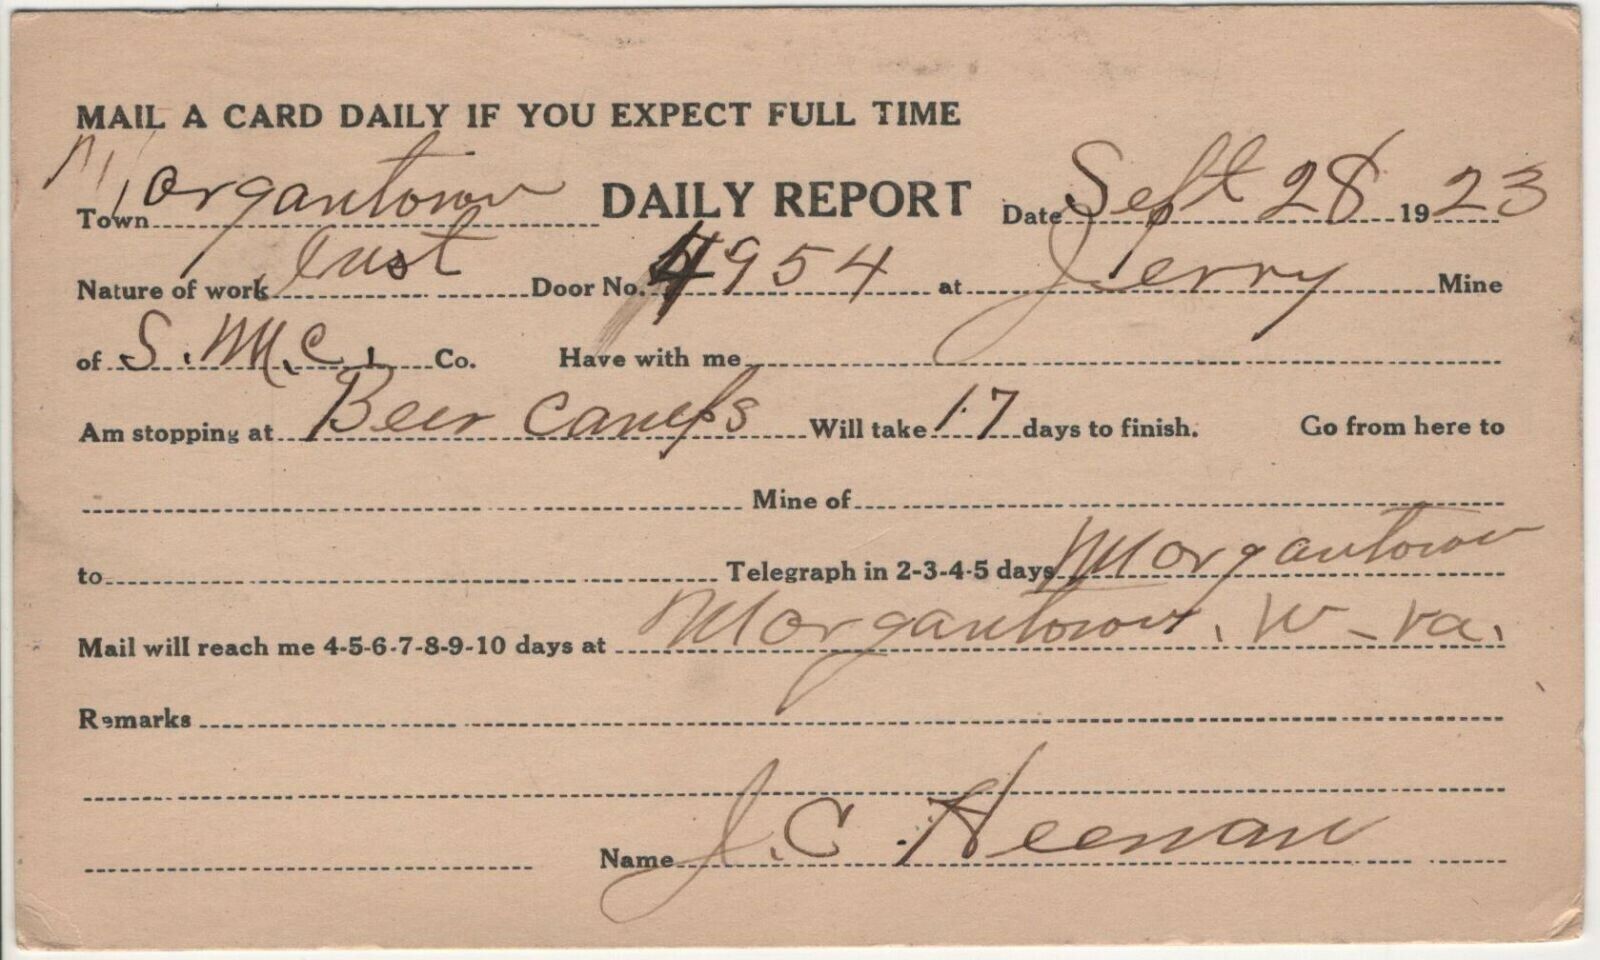 MAIL A CARD DAILY IF YOU EXPECT FULL TIME
Town Morgantown DAILY REPORT Date Sept 28 1923
Nature of work Inst Door No. 4954 at Jerry Mine
of S. M. C. Co. Have with me
Am stopping at Beer camps Will take 17 days to finish. Go from here to
Mine of
to Telegraph in 2-3-4-5 days Morgantown
Mail will reach me 4-5-6-7-8-9-10 days at Morgantown, W-va.
Remarks
Name J. C. Heenan